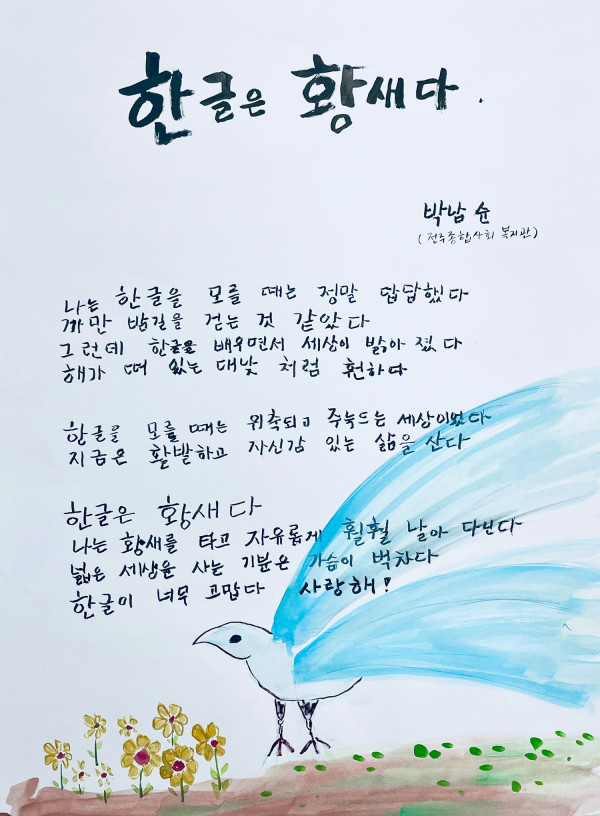 한글은 황새다.
박남순
(전주종합사회 복지관)
나는 한글을 모를 때는 정말 답답했다
까만 밤길을 걷는 것 같았다
그런데 한글을 배우면서 세상이 밝아 졌다
해가 떠 있는 대낮 처럼 훤하다
한글을 모를 때는 위축되고 주눅드는 세상이었다
지금은 활발하고 자신감 있는 삶을 산다
한글은 황새다
나는 황새를 타고 자유롭게 훨훨 날아 다닌다
넓은 세상을 사는 기분은 가슴이 벅차다
한글이 너무 고맙다 사랑해!